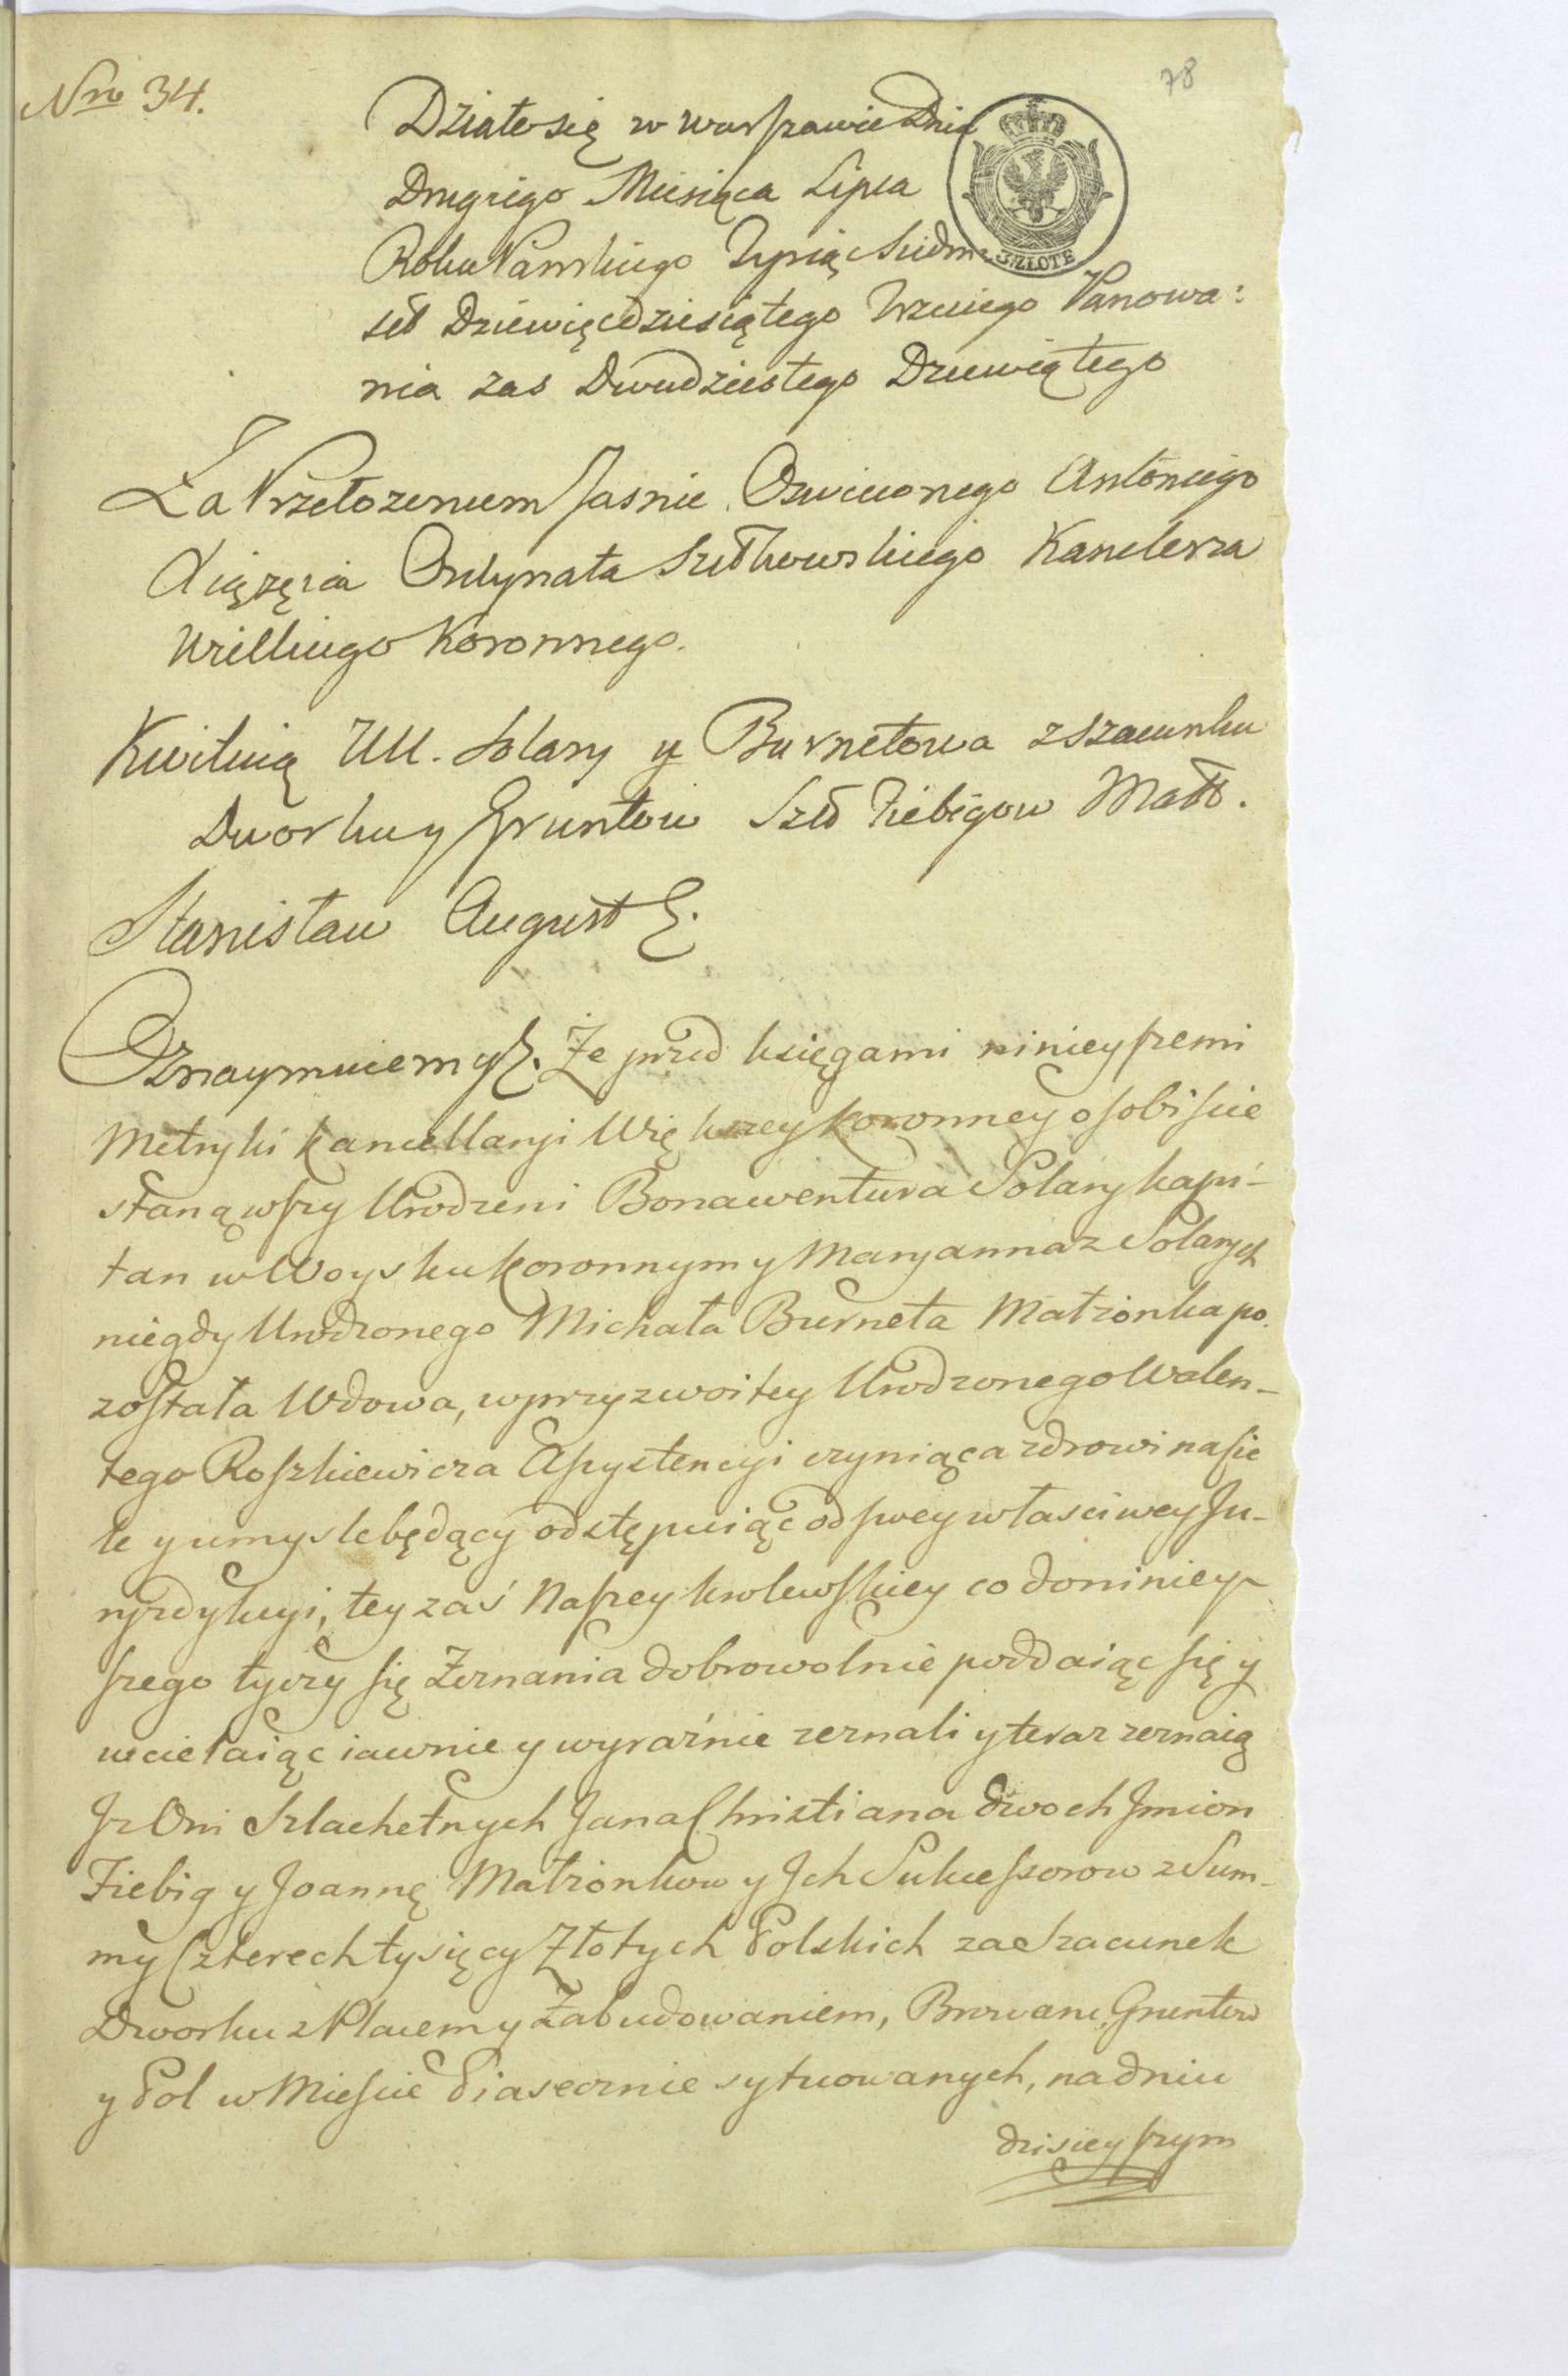 78
Nro 34.
Działo się w Warszawie Dnia
Drugiego Miesiąca Lipca
Roku Pańskiego Tysiąc Siedm
3. ZŁOTE
set Dziewięćdziesiątego Trzeciego Panowa:
nia zas Dwudziestego Dziewiątego
Za Przełozeniem Jasnie Oswieconego Antoniego
Xiążęcia Ordynata Sułkowskiego Kanclerza
Wielkiego Koronnego.
Kwituią UU. Solary y Burnetowa z szacunku
Dworku y Gruntow Szl Fiebigow Małż.
Stanisław August &.
Oznaymuiemy &. Że przed księgami ninieyszemi
Metryki Kancellaryi Większey Koronney osobiscie
stanąwszy Urodzeni Bonawentura Solary kapi-
tan w Woysku Koronnym y Maryanna z Solarych
niegdy Urodzonego Michała Burneta Małżonka po.
została Wdowa, w przyzwoitey Urodzonego Walen-
tego Roszkiewicza Assystencyi czyniąca zdrowi na cie
le y umysle będący odstępuiąc od swey własciwey Ju-
ryzdykcyi, tey zaś Naszey krolewskiey co do niniey-
szego tyczy się Zeznania dobrowolnie poddaiąc się y
wcielaiąc iawnie y wyraźnie zeznali y teraz zeznaią
Jz Oni Szlachetnych Jana Christiana dwoch Jmion
Fiebig y Joannę Małżonkow y Jch Sukcessorow z Sum-
my Czterech tysięcy Złotych Polskich za Szacunek
Dworku z Placem y Zabudowaniem, Browaru, Gruntow
y Pol w Miescie Piasecznie sytuowanych, na dniu
dzisieyszym